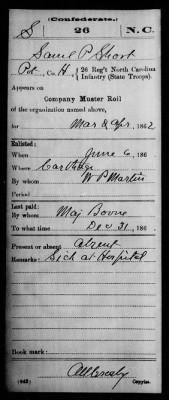 (Confederate.)
S 26 N.C.
Saml P Short
Pvt, Co. H, 26 Reg't North Carolina
Infantry (State Troops).
Appears on
Company Muster Roll
of the organization named above,
for Mar & Apr, 1862
Enlisted:
When June 6, 186
Where Carthage
By whom W P Martin
Period
Last paid:
By whom Maj
To what time Dec 31, 186
Present or absent Absent
Remarks: Sick at Hospital
Book mark:
(642) Copyist.